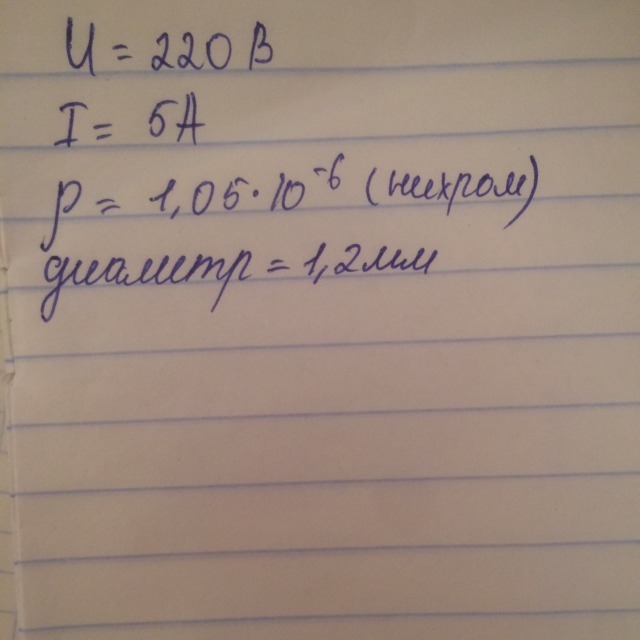 U = 220 В
I = 5А
ρ = 1,05·10⁻⁶ (нихром)
диаметр = 1,2мм